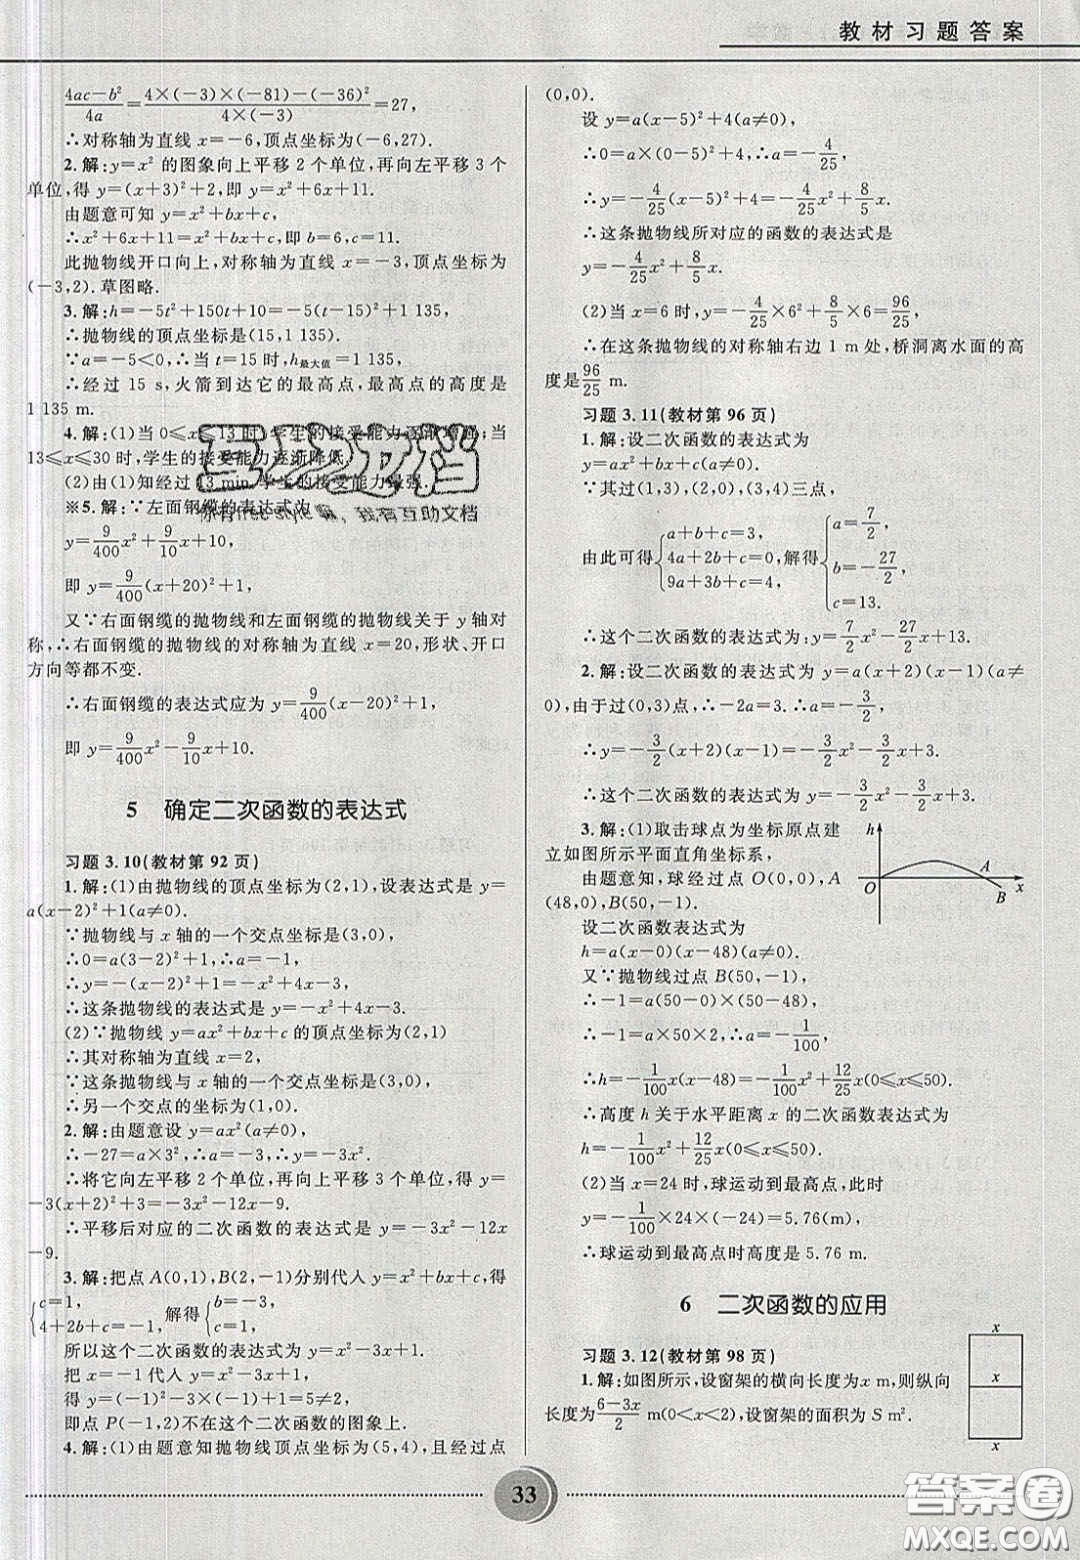 教材习题答案
(4ac-b²)/4a=(4×(-3)×(-81)-(-36)²)/(4×(-3))=27,
∴对称轴为直线 x=-6,顶点坐标为(-6,27).
2.解:y=x² 的图象向上平移 2 个单位,再向左平移 3 个
单位,得 y=(x+3)²+2,即 y=x²+6x+11.
由题意可知 y=x²+bx+c,
∴x²+6x+11=x²+bx+c,即 b=6,c=11.
此抛物线开口向上,对称轴为直线 x=-3,顶点坐标为
(-3,2).草图略.
3.解:h=-5t²+150t+10=-5(t-15)²+1 135,
∴抛物线的顶点坐标是(15,1 135).
∵a=-5<0,∴当 t=15 时,h最大值=1 135,
∴经过 15 s,火箭到达它的最高点,最高点的高度是
1 135 m.
4.解:(1)当 0≤x≤13 时,学生的接受能力逐渐增强;当
13≤x≤30 时,学生的接受能力逐渐降低.
(2)由(1)知经过 13 min,学生的接受能力最强.
※5.解:∵左面钢缆的表达式为
y=9/400x²+9/10x+10,
即 y=9/400(x+20)²+1,
又∵右面钢缆的抛物线和左面钢缆的抛物线关于 y 轴对
称,∴右面钢缆的抛物线的对称轴为直线 x=20,形状、开口
方向等都不变.
∴右面钢缆的表达式应为 y=9/400(x-20)²+1,
即 y=9/400x²-9/10x+10.
5 确定二次函数的表达式
习题 3.10(教材第 92 页)
1.解:(1)由抛物线的顶点坐标为(2,1),设表达式是 y=
a(x-2)²+1(a≠0).
∵抛物线与 x 轴的一个交点坐标是(3,0),
∴0=a(3-2)²+1,∴a=-1,
∴y=-(x-2)²+1=-x²+4x-3,
∴这条抛物线的表达式是 y=-x²+4x-3.
(2)∵抛物线 y=ax²+bx+c 的顶点坐标为(2,1)
∴其对称轴为直线 x=2,
∵这条抛物线与 x 轴的一个交点坐标为(3,0),
∴另一个交点的坐标为(1,0).
2.解:由题意设 y=ax²(a≠0),
∴-27=a×3²,∴a=-3,∴y=-3x²,
∴将它向左平移 2 个单位,再向上平移 3 个单位,得 y=
-3(x+2)²+3=-3x²-12x-9.
∴平移后对应的二次函数的表达式是 y=-3x²-12x
-9.
3.解:把点 A(0,1),B(2,-1)分别代入 y=x²+bx+c,得
{c=1, 4+2b+c=-1, 解得{b=-3, c=1.
所以这个二次函数的表达式为 y=x²-3x+1.
把 x=-1 代入 y=x²-3x+1,
得 y=(-1)²-3×(-1)+1=5≠2,
即点 P(-1,2)不在这个二次函数的图象上.
4.解:(1)由题意知抛物线顶点坐标为(5,4),且经过点
(0,0).
设 y=a(x-5)²+4(a≠0),
∴0=a×(0-5)²+4,∴a=-4/25,
∴y=-4/25(x-5)²+4=-4/25x²+8/5x.
∴这条抛物线所对应的函数的表达式是
y=-4/25x²+8/5x.
(2)当 x=6 时,y=-4/25×6²+8/5×6=96/25,
∴在这条抛物线的对称轴右边 1 m 处,桥洞离水面的高
度是96/25 m.
习题 3.11(教材第 96 页)
1.解:设二次函数的表达式为
y=ax²+bx+c(a≠0).
∵其过(1,3),(2,0),(3,4)三点,
由此可得{a+b+c=3, 4a+2b+c=0, 9a+3b+c=4, 解得{a=7/2, b=-27/2, c=13.
∴这个二次函数的表达式为:y=7/2x²-27/2x+13.
2.解:设二次函数的表达式为 y=a(x+2)(x-1)(a≠
0),由于过(0,3)点,∴-2a=3.∴a=-3/2,
∴y=-3/2(x+2)(x-1)=-3/2x²-3/2x+3.
∴这个二次函数的表达式为 y=-3/2x²-3/2x+3.
3.解:(1)取击球点为坐标原点建
立如图所示平面直角坐标系,
由题意知,球经过点 O(0,0),A
(48,0),B(50,-1).
h
O
A
B
x
设二次函数表达式为
h=a(x-0)(x-48)(a≠0).
又∵抛物线过点 B(50,-1),
∴-1=a(50-0)×(50-48),
∴-1=a×50×2,∴a=-1/100,
∴h=-1/100x(x-48)=-1/100x²+12/25x(0≤x≤50).
∴高度 h 关于水平距离 x 的二次函数表达式为
h=-1/100x²+12/25x(0≤x≤50).
(2)当 x=24 时,球运动到最高点,此时
y=-1/100×24×(-24)=5.76(m),
∴球运动到最高点时高度是 5.76 m.
6 二次函数的应用
习题 3.12(教材第 98 页)
1.解:如图所示,设窗架的横向长度为x m,则纵向
长度为(6-3x)/2 m(0<x<2),设窗架的面积为 S m².
x
x
x
33
答案圈
MXQE.COM